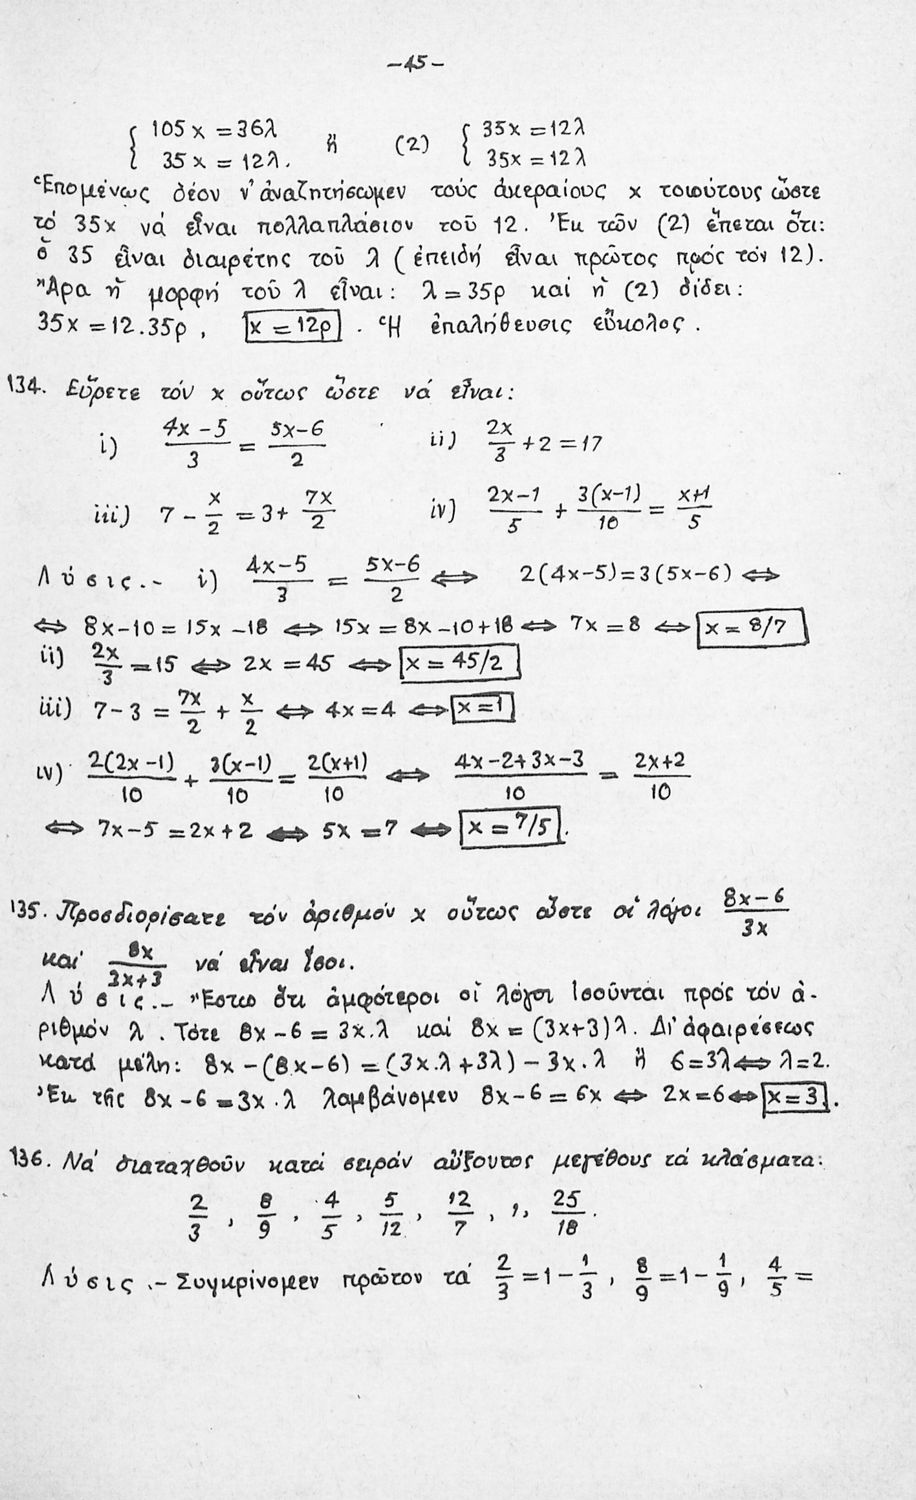 -45-
{ 105x = 36λ ἤ (2) { 35x = 12λ
35x = 12λ. 35x = 12λ
Ἑπομένως δέον ν' ἀναζητήσωμεν τούς ἀκεραίους x τοιούτους ὥστε
τό 35x νά εἶναι πολλαπλάσιον τοῦ 12. Ἐκ τῶν (2) ἕπεται ὅτι:
ὁ 35 εἶναι διαιρέτης τοῦ λ (ἐπειδή εἶναι πρῶτος πρός τόν 12).
Ἄρα ἡ μορφή τοῦ λ εἶναι: λ = 35ρ καί ἡ (2) δίδει:
35x = 12.35ρ, x = 12ρ . Ἡ ἐπαλήθευσις εὔκολος.
134. Εὕρετε τόν x οὕτως ὥστε νά εἶναι:
i) (4x-5)/3 = (5x-6)/2 ii) 2x/3 + 2 = 17
iii) 7 - x/2 = 3 + 7x/2 iv) (2x-1)/5 + 3(x-1)/10 = (x+1)/5
Λύσις.- i) (4x-5)/3 = (5x-6)/2 ⇔ 2(4x-5)=3(5x-6) ⇔
⇔ 8x-10 = 15x-18 ⇔ 15x = 8x-10+18 ⇔ 7x = 8 ⇔ x = 8/7
ii) 2x/3 = 15 ⇔ 2x = 45 ⇔ x = 45/2
iii) 7-3 = 7x/2 + x/2 ⇔ 4x = 4 ⇔ x = 1
iv) 2(2x-1)/10 + 3(x-1)/10 = 2(x+1)/10 ⇔ (4x-2+3x-3)/10 = (2x+2)/10
⇔ 7x-5 = 2x+2 ⇔ 5x = 7 ⇔ x = 7/5.
135. Προσδιορίσατε τόν ἀριθμόν x οὕτως ὥστε οἱ λόγοι (8x-6)/3x
καί 8x/(3x+3) νά εἶναι ἴσοι.
Λύσις.- Ἔστω ὅτι ἀμφότεροι οἱ λόγοι ἰσοῦνται πρός τόν ἀ-
ριθμόν λ. Τότε 8x-6 = 3x.λ καί 8x = (3x+3)λ. Δι' ἀφαιρέσεως
κατά μέλη: 8x-(8x-6) = (3x.λ+3λ)-3x.λ ἤ 6=3λ ⇔ λ=2.
Ἐκ τῆς 8x-6 = 3x.λ λαμβάνομεν 8x-6 = 6x ⇔ 2x = 6 ⇔ x = 3.
136. Νά διαταχθοῦν κατά σειράν αὔξοντος μεγέθους τά κλάσματα:
2/3, 8/9, 4/5, 5/12, 12/7, 1, 25/18.
Λύσις.- Συγκρίνομεν πρῶτον τά 2/3 = 1-1/3, 8/9 = 1-1/9, 4/5 =